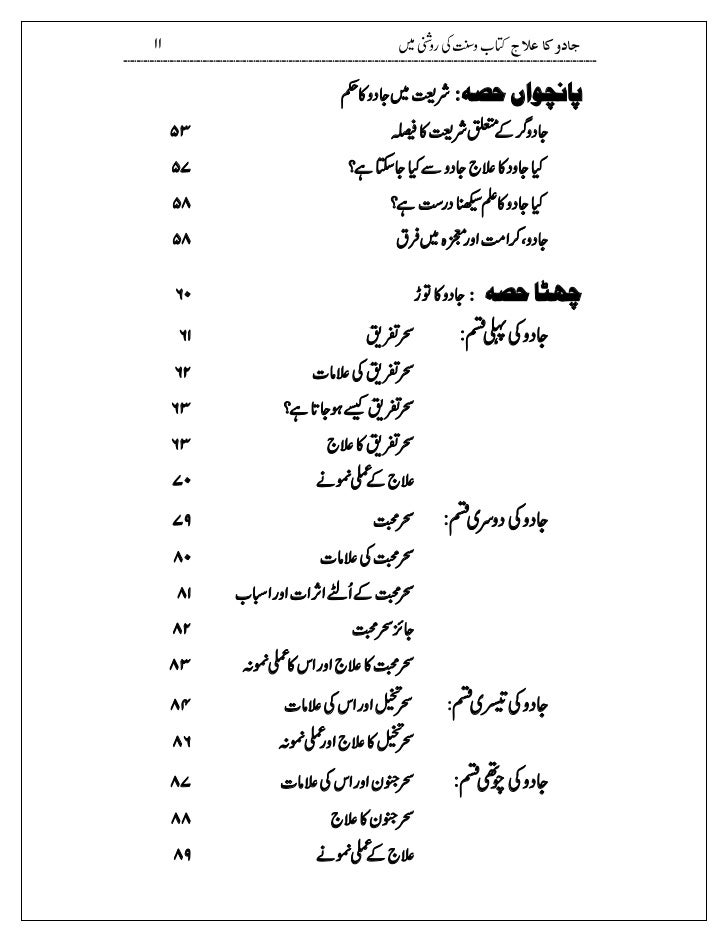 جادو کا علاج کتاب وسنت کی روشنی میں ۱۱
پانچواں حصه: شریعت میں جادو کا حکم
جادوگر کے متعلق شریعت کا فیصلہ ۵۳
کیا جاود کا علاج جادو سے کیا جاسکتا ہے؟ ۵۷
کیا جادو کا علم سیکھنا درست ہے؟ ۵۸
جادو، کرامت اور معجزہ میں فرق ۵۸
چھٹا حصه : جادو کا توڑ ۶۰
جادو کی پہلی قسم: سحر تفریق ۶۱
سحر تفریق کی علامات ۶۲
سحر تفریق کیسے ہوجاتا ہے؟ ۶۳
سحر تفریق کا علاج ۶۳
علاج کے عملی نمونے ۷۰
جادو کی دوسری قسم: سحر محبت ۷۹
سحر محبت کی علامات ۸۰
سحر محبت کے اُلٹے اثرات اور اسباب ۸۱
جائز سحر محبت ۸۲
سحر محبت کا علاج اور اس کا عملی نمونہ ۸۳
جادو کی تیسری قسم: سحر تخیل اور اس کی علامات ۸۴
سحر تخیل کا علاج اور عملی نمونہ ۸۶
جادو کی چوتھی قسم: سحر جنون اور اس کی علامات ۸۷
سحر جنون کا علاج ۸۸
علاج کے عملی نمونے ۸۹